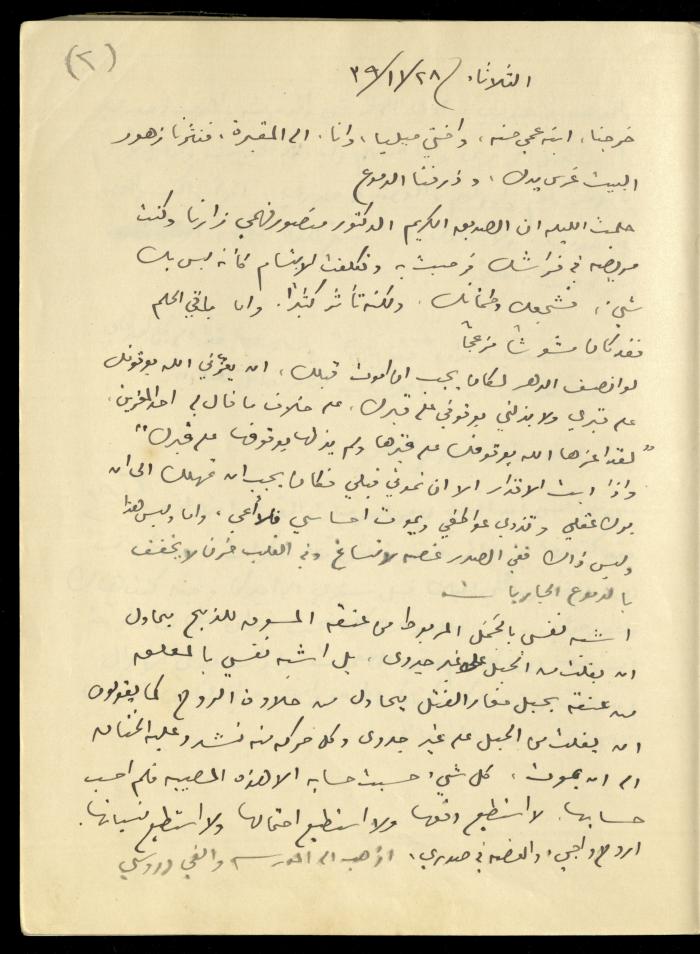 (٢)
الثلاثاء ٢٨/١١/٣٩
خرجنا، ابنة عمي حسنه، واختي ميليا، وانا، الى المقبرة، فنثرنا زهور
البيت غرس يدك، وذرفنا الدموع
حلمت الليلة ان الصديق الكريم الدكتور منصور فهمي زارنا وكنت
مريضة في فراشك فرحبت به وتكلفت الابتسام كأنه ليس بك
شيء، فشجعك وطمأنك. ولكنه تأثر كثيرا. واما باقي الحلم
فقد كان مشوشاً مزعجاً
لو انصف الدهر لكان يجب ان اموت قبلك، ان يعزني الله بوقوفك
على قبري ولا يذلني بوقوفي على قبرك، على خلاف ما قال احد المعزين
"لقد اعزها الله بوقوفك على قبرها ولم يذلها بوقوفها على قبرك"
واذا ابت الاقدار الا ان تموتي قبلي فكان يجب ان تمهلك الى ان
يبرك عقلي وتذوي عواطفي ويموت احساسي فلا أعي، واما وليس هذا
وليس ذاك ففي الصدر غصه لا تساغ وفي القلب حزن لا يخفف
بالدموع الجاريات
اشبه نفسي بالحَمَل المربوط من عنقه المسوق للذبح يحاول
ان يفلت من الحبل على غير جدوى، بل اشبه نفسي بالمعلق
من عنقه بحبل فكان الفتل يحاول من حلاوة الروح كما يقولون
ان يفلت من الحبل على غير جدوى وكل حركه منه تشد عليه الخناق
الى ان يموت، كل شيء حسبت حسابه الا هذه المصيبه فلم احسب
حسابها. لا استطيع دفعها ولا استطيع احتمالها ولا استطيع نسيانها.
اروح واجيء والغصه في صدري، اذهب الى المدرسة والقي دروسي